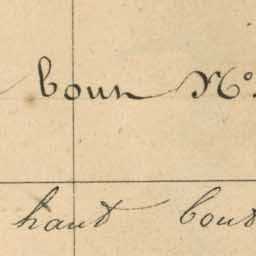 bout N°.
haut bout